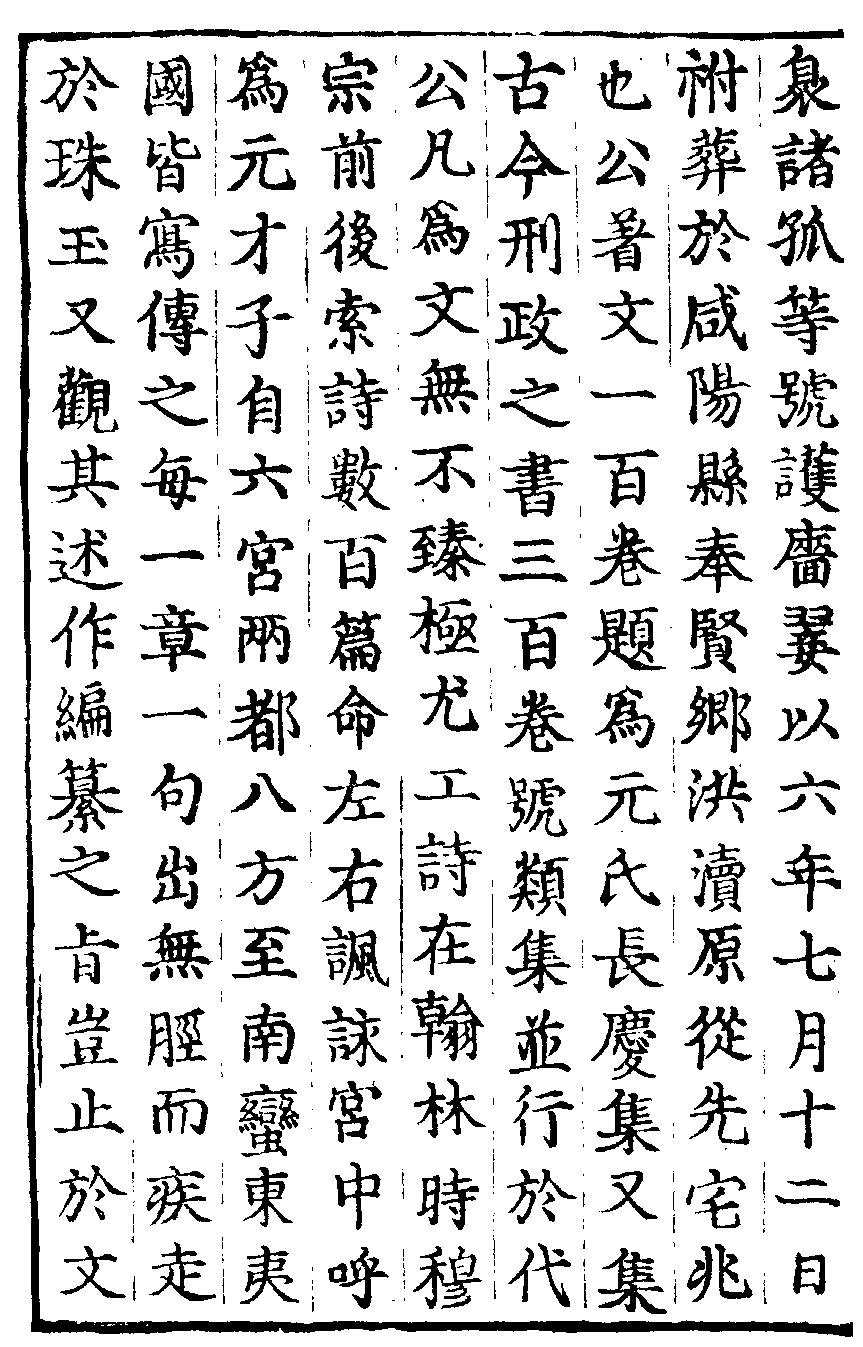 裒諸孤等號護廧翣以六年七月十二日
祔葬於咸陽縣奉賢鄉洪瀆原從先宅兆
也公著文一百卷題爲元氏長慶集又集
古今刑政之書三百卷號類集並行於代
公凡爲文無不臻極尤工詩在翰林時穆
宗前後索詩數百篇命左右諷詠宮中呼
爲元才子自六宮兩都八方至南蠻東夷
國皆寫傳之每一章一句出無脛而疾走
於珠玉又觀其述作編纂之旨豈止於文